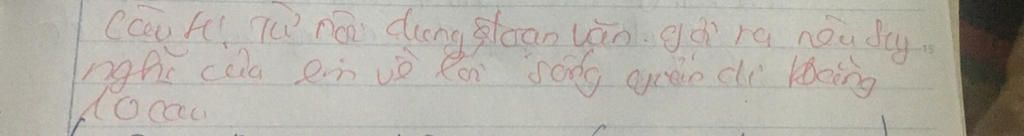 Câu 4: Từ nội dung đoan văn. gợi ra nêu suy
nghĩ của em về lối sống giản di khoảng
10 câu